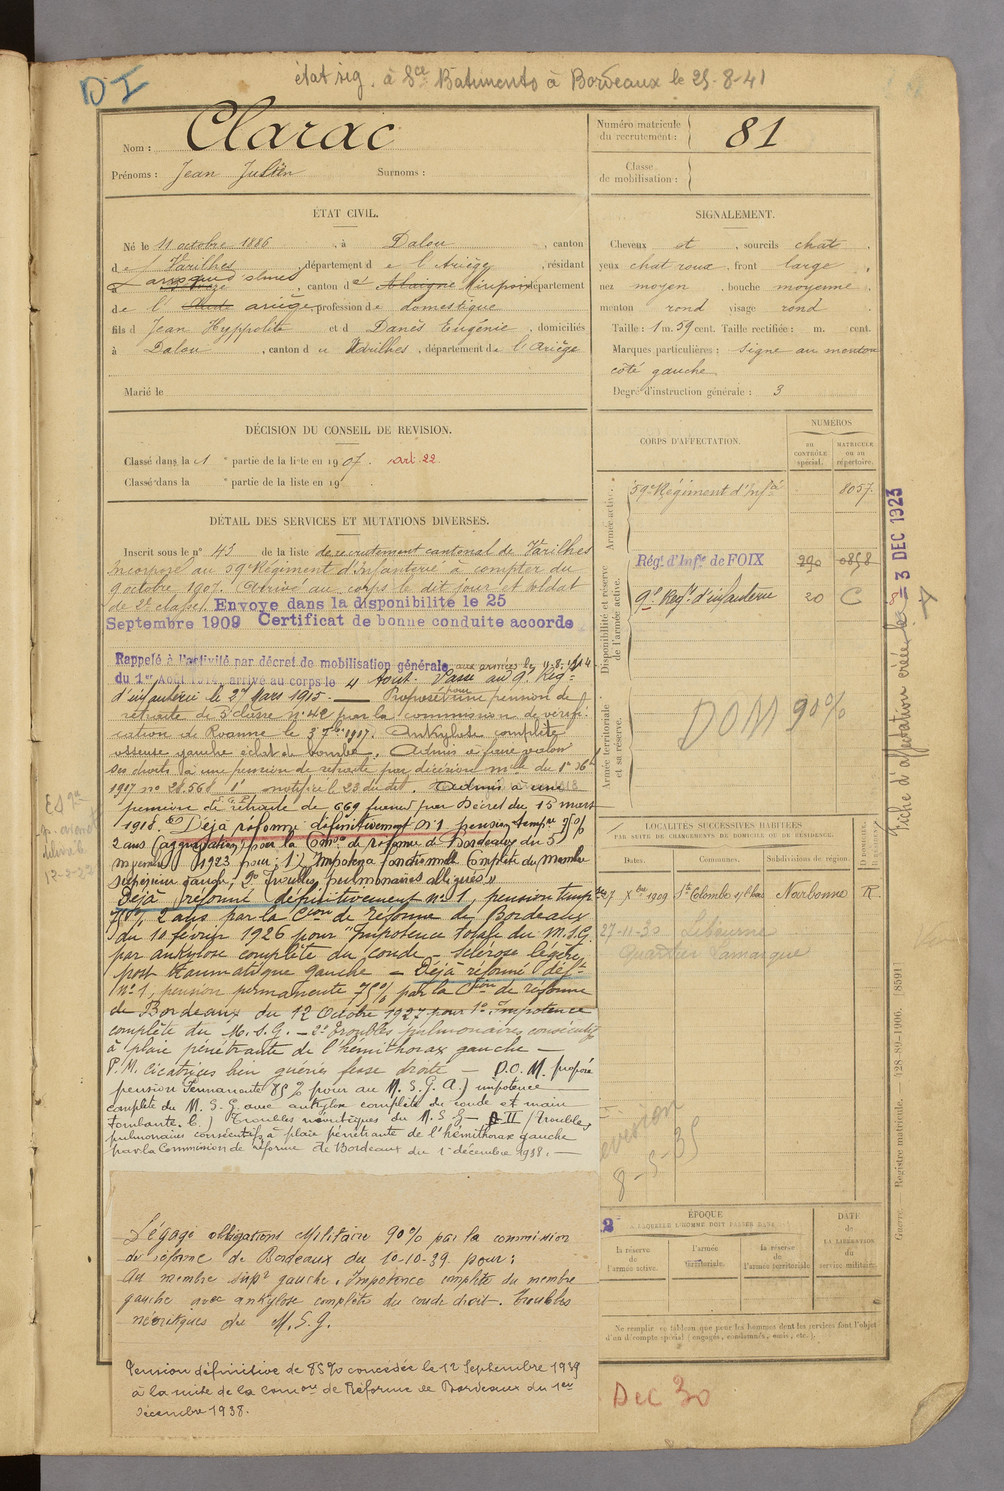 DI
état sig. à Sce Batiments à Bordeaux le 25-8-41
Nom : Clarac
Prénoms : Jean Julien Surnoms :
Numéro matricule du recrutement : 81
Classe de mobilisation :
ÉTAT CIVIL.
Né le 11 octobre 1886, à Dalou, canton
de Varilhes, département de l'Ariège, résidant
à, canton de Mirepoix département
de l' ariège, profession de domestique
fils d Jean Hyppolite et d Danès Eugénie, domiciliés
à Dalou, canton de Varilhes, département de l'Ariège
Marié le
SIGNALEMENT.
Cheveux et, sourcils chat
yeux chat roux, front large
nez moyen, bouche moyenne
menton rond visage rond
Taille : 1 m. 59 cent. Taille rectifiée : m. cent.
Marques particulières : signe au menton
côté gauche
Degré d'instruction générale : 3
DÉCISION DU CONSEIL DE REVISION.
Classé dans la 1 e partie de la liste en 1907. art 22
Classé dans la e partie de la liste en 19
DÉTAIL DES SERVICES ET MUTATIONS DIVERSES.
Inscrit sous le n° 43 de la liste de recrutement cantonal de Varilhes
Incorporé au 59e Régiment d'infanterie à compter du
9 octobre 1907. Arrivé au corps le dit jour et soldat
de 2e classe. Envoye dans la disponibilite le 25
Septembre 1909 Certificat de bonne conduite accorde
Rappelé à l'activité par décret de mobilisation générale aux armées le 11-8-1914
du 1er Août 1914, arrivé au corps le 4 Août. Passé au 9e Régt
d'infanterie le 27 Mars 1915. — Proposé pour une pension de
retraite de 5e classe n° 42 par la commission de vérifi-
cation de Roanne le 3 7bre 1917. Ankylose complète
osseuse gauche éclat de bombe. Admis à faire valoir
ses droits à une pension de retraite par décision mlle du 1er Xbre
1917 n° 28.568 notifiée le 23 du dit. Admis à une
pension de retraite de 669 francs par Décret du 15 mars
1918. Déjà réformé définitivement n°1 pension temp.re
2 ans (aggravation) par la Comon de réforme de Bordeaux du 5
1923 pour : 1° Impotence fonctionnelle complète du membre
supérieur gauche, 2° Troubles pulmonaires allégués
Déjà réformé définitivement n° 1, pension temp.re
2 ans par la Cion de réforme de Bordeaux
du 10 février 1926 pour "Impotence totale du M.S.G.
par ankylose complète du coude – sclérose légère
post traumatique gauche — Déjà réformé déft
n° 1, pension permanente 75% par la Cion de réforme
de Bordeaux du 12 Octobre 1927 pour 1° Impotence
complète du M.S.G. – 2° Troubles pulmonaires consécutifs
à plaie pénétrante de l'hémithorax gauche –
P.M. Cicatrices bien guéries fesse droite – D.O.M. proposé
pension Permanente 85% pour au M.S.G. A.) impotence
complète du M.S.G. avec ankylose complète du coude et main
tombante. b.) Troubles névritiques du M.S.G. – II / Troubles
pulmonaires consécutifs à plaie pénétrante de l'hémithorax gauche
par la Commission de réforme de Bordeaux du 1er décembre 1938. —
Dégagé obligations Militaire 90% par la commission
de réforme de Bordeaux du 10-10-39 pour :
Au membre supr gauche. Impotence complète du membre
gauche avec ankylose complète du coude droit. Troubles
névritiques du M.S.G.
Pension définitive de 85% concédée le 12 Septembre 1939
à la suite de la Comon de Réforme de Bordeaux du 1er
Décembre 1938.
CORPS D'AFFECTATION.
NUMÉROS
au contrôle spécial.
matricule ou au répertoire.
Armée active.
59e Régiment d'Infie 8057
Disponibilité et réserve de l'armée active.
Régt d'Infie de FOIX 290 0858
9e Regt d'infanterie 20 C
Armée territoriale et sa réserve.
DOM 90%
LOCALITÉS SUCCESSIVES HABITÉES
PAR SUITE DE CHANGEMENTS DE DOMICILE OU DE RÉSIDENCE.
Dates. Communes. Subdivisions de région.
27 Xbre 1909 Ste Colombe s/l'hers Narbonne R
27-11-30 Libourne
Quartier Lamarque
Revision
8-5-35
2
ÉPOQUE
À LAQUELLE L'HOMME DOIT PASSER DANS
la réserve de l'armée active.
l'armée territoriale.
la réserve de l'armée territoriale.
DATE de LA LIBÉRATION du service militaire.
Ne remplir ce tableau que pour les hommes dont les services font l'objet
d'un décompte spécial (engagés, condamnés, omis, etc.).
Dec 30
Fiche d'affectation créée le 3 DEC 1923
Guerre. Registre matricule. 128-89-1906. [8591]